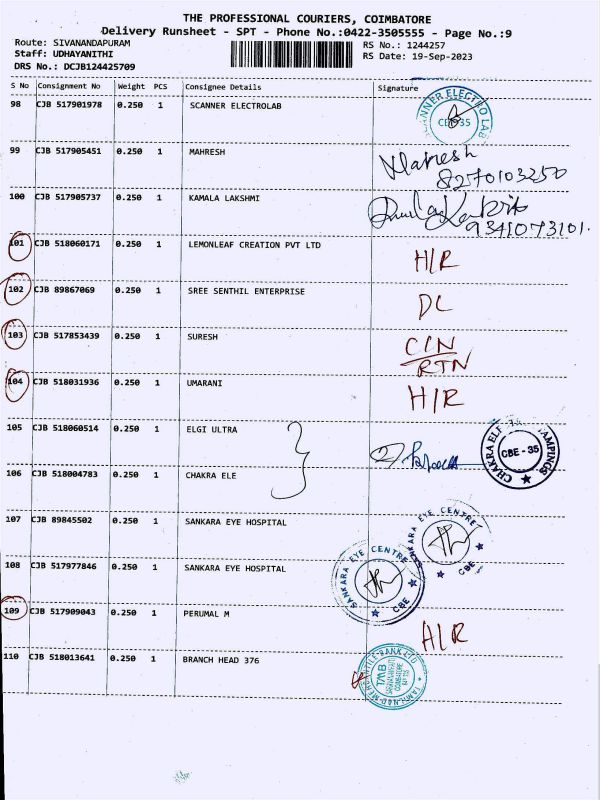 THE PROFESSIONAL COURIERS, COIMBATORE
Delivery Runsheet - SPT - Phone No.:0422-3505555 - Page No.:9
Route: SIVANANDAPURAM
Staff: UDHAYANITHI
DRS No.: DCJB124425709
RS No.: 1244257
RS Date: 19-Sep-2023
S No Consignment No Weight PCS Consignee Details Signature
98 CJB 517901978 0.250 1 SCANNER ELECTROLAB
SCANNER ELECTRO LAB
99 CJB 517905451 0.250 1 MAHRESH Mahresh
8270103250
100 CJB 517905737 0.250 1 KAMALA LAKSHMI
9341073101.
101 CJB 518060171 0.250 1 LEMONLEAF CREATION PVT LTD H/R
102 CJB 89867069 0.250 1 SREE SENTHIL ENTERPRISE DL
103 CJB 517853439 0.250 1 SURESH C/N
RTN
104 CJB 518031936 0.250 1 UMARANI H/R
105 CJB 518060514 0.250 1 ELGI ULTRA
CBE - 35
106 CJB 518004783 0.250 1 CHAKRA ELE
107 CJB 89845502 0.250 1 SANKARA EYE HOSPITAL
SANKARA EYE CENTRE CBE
108 CJB 517977846 0.250 1 SANKARA EYE HOSPITAL
SANKARA EYE CENTRE CBE
109 CJB 517909043 0.250 1 PERUMAL M H/R
110 CJB 518013641 0.250 1 BRANCH HEAD 376
TAMILNAD MERCANTILE BANK LTD
TMB